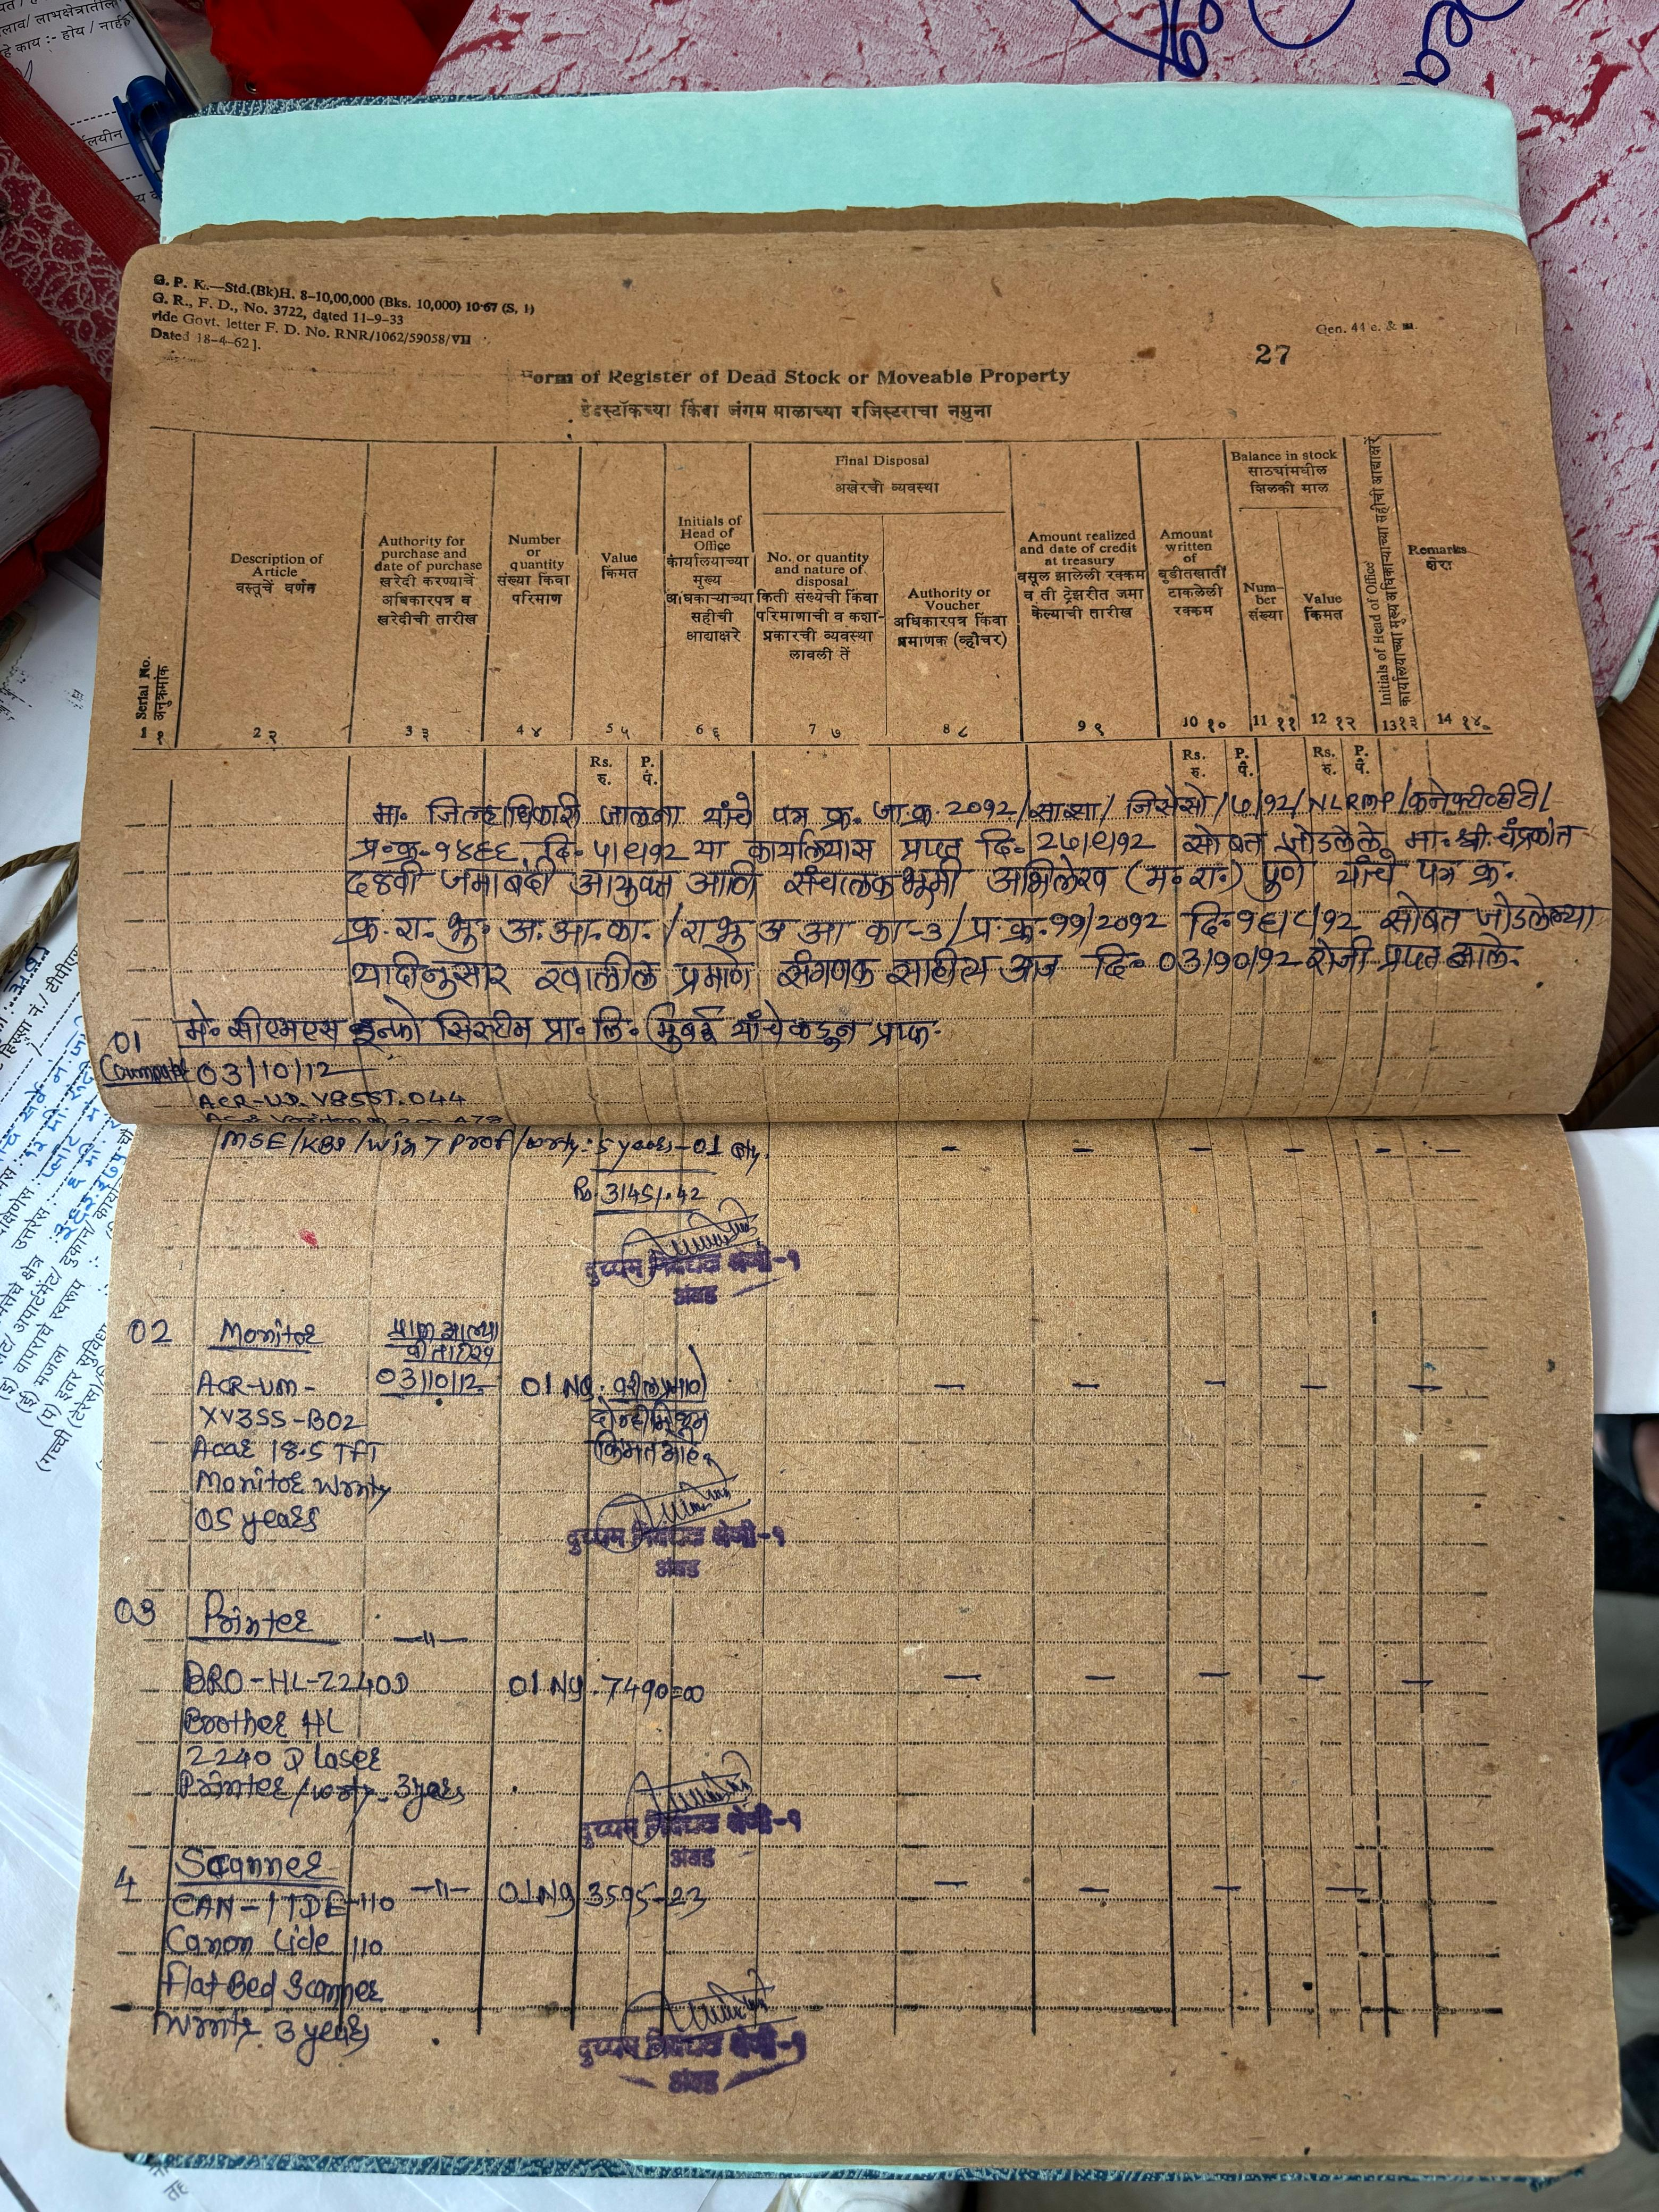 G. P. K.—Std.(Bk)H. 8-10,00,000 (Bks. 10,000) 10-67 (S. 1)
G. R., F. D., No. 3722, dated 11-9-33
vide Govt. letter F. D. No. RNR/1062/59058/VII
Dated 18-4-62].
Gen. 44 e. & m.
27
Form of Register of Dead Stock or Moveable Property
डेडस्टॉकच्या किंवा जंगम मालाच्या रजिस्टराचा नमुना
Serial No.
अनुक्रमांक
1 १
Description of
Article
वस्तूचें वर्णन
2 २
Authority for
purchase and
date of purchase
खरेदी करण्याचें
अधिकारपत्र व
खरेदीची तारीख
3 ३
Number
or
quantity
संख्या किंवा
परिमाण
4 ४
Value
किंमत
5 ५
Initials of
Head of
Office
कार्यालयाच्या
मुख्य
अधिकाऱ्याच्या
सहीची
आद्याक्षरे
6 ६
Final Disposal
अखेरची व्यवस्था
No. or quantity
and nature of
disposal
किती संख्येची किंवा
परिमाणाची व कशा-
प्रकारची व्यवस्था
लावली तें
7 ७
Authority or
Voucher
अधिकारपत्र किंवा
प्रमाणक (व्हौचर)
8 ८
Amount realized
and date of credit
at treasury
वसूल झालेली रक्कम
व ती ट्रेझरीत जमा
केल्याची तारीख
9 ९
Amount
written
of
बुडीतखातीं
टाकलेली
रक्कम
10 १०
Balance in stock
साठ्यांमधील
शिलकी माल
Num-
ber
संख्या
11 ११
Value
किंमत
12 १२
Initials of Head of Office
कार्यालयाच्या मुख्य अधिकाऱ्याच्या सहीची आद्याक्षरे
13 १३
Remarks
शेरा
14 १४
Rs. P. Rs. P. Rs. P.
रु. पै. रु. पै. रु. पै.
मा. जिल्हाधिकारी जालना यांचे पत्र क्र. जा.क्र. 2092/साझ्या/ जिसेसो/७/92/NLRMP/कनेक्टीव्हीटी/
प्र.क्र. १४६६, दि. ५/९/१२ या कार्यालयास प्राप्त दि. 2७/९/१2 सोबत जोडलेले मा. श्री. चंद्रकांत
दळवी जमाबंदी आयुक्त आणि संचालक भूमी अभिलेख (म. रा.) पुणे यांचे पत्र क्र.
क्र. रा. भू. अ. आ. का. /रा भू अ आ का-3/ प्र. क्र. 99/2092 दि. 9६/८/92 सोबत जोडलेल्या
यादीनुसार खालील प्रमाणे संगणक साहीत्य आज दि. 03/90/92 रोजी प्राप्त झाले.
01 मे. सीएमएस इन्फो सिस्टीम प्रा. लि. मुंबई यांचेकडून प्राप्त.
Computer 03/10/12
ACR-UD.V85ST.044
MSE/KBD/Win 7 Prof/wrty: 5 years-01 qty.
Rs. 31451.42
दुय्यम निबंधक श्रेणी-१
अंबड
02 Monitor प्राप्त झाल्या
ची तारीख
ACR-UM- 03/10/12 01 Ng. वरीलप्रमाणे
XV3SS-B02 दोन्ही मिळून
Acer 18.5 TFT किंमत आहे.
Monitor wrnty
05 years
दुय्यम निबंधक श्रेणी-१
अंबड
03 Printer —॥—
BRO-HL-2240D 01 Ng. 7490=00
Brother HL
2240 D laser
Printer/wrty. 3 years
दुय्यम निबंधक श्रेणी-१
अंबड
4 Scanner
CAN-LIDE-110 —॥— 01 Ng 3595-23
Canon Lide 110
Flat Bed Scanner
Wrnty. 3 years
दुय्यम निबंधक श्रेणी-१
अंबड